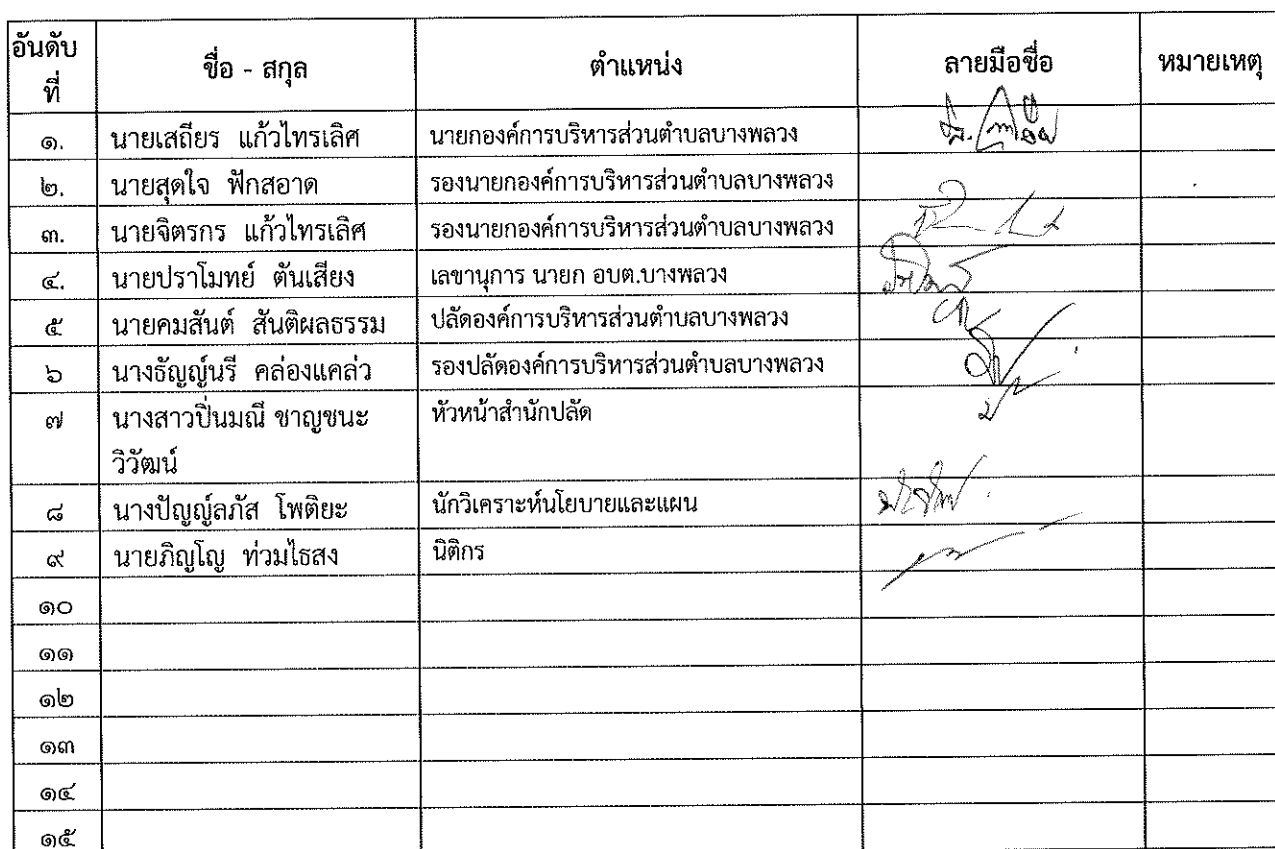 อันดับ
ที่ ชื่อ - สกุล ตำแหน่ง ลายมือชื่อ หมายเหตุ
๑. นายเสถียร แก้วไทรเลิศ นายกองค์การบริหารส่วนตำบลบางพลวง
๒. นายสุดใจ ฟักสอาด รองนายกองค์การบริหารส่วนตำบลบางพลวง
๓. นายจิตรกร แก้วไทรเลิศ รองนายกองค์การบริหารส่วนตำบลบางพลวง
๔. นายปราโมทย์ ตันเสียง เลขานุการ นายก อบต.บางพลวง
๕ นายคมสันต์ สันติผลธรรม ปลัดองค์การบริหารส่วนตำบลบางพลวง
๖ นางธัญญ์นรี คล่องแคล่ว รองปลัดองค์การบริหารส่วนตำบลบางพลวง
๗ นางสาวปิ่นมณี ชาญชนะ หัวหน้าสำนักปลัด
วิวัฒน์
๘ นางปัญญ์ลภัส โพติยะ นักวิเคราะห์นโยบายและแผน
๙ นายภิญโญ ท่วมไธสง นิติกร
๑๐
๑๑
๑๒
๑๓
๑๔
๑๕